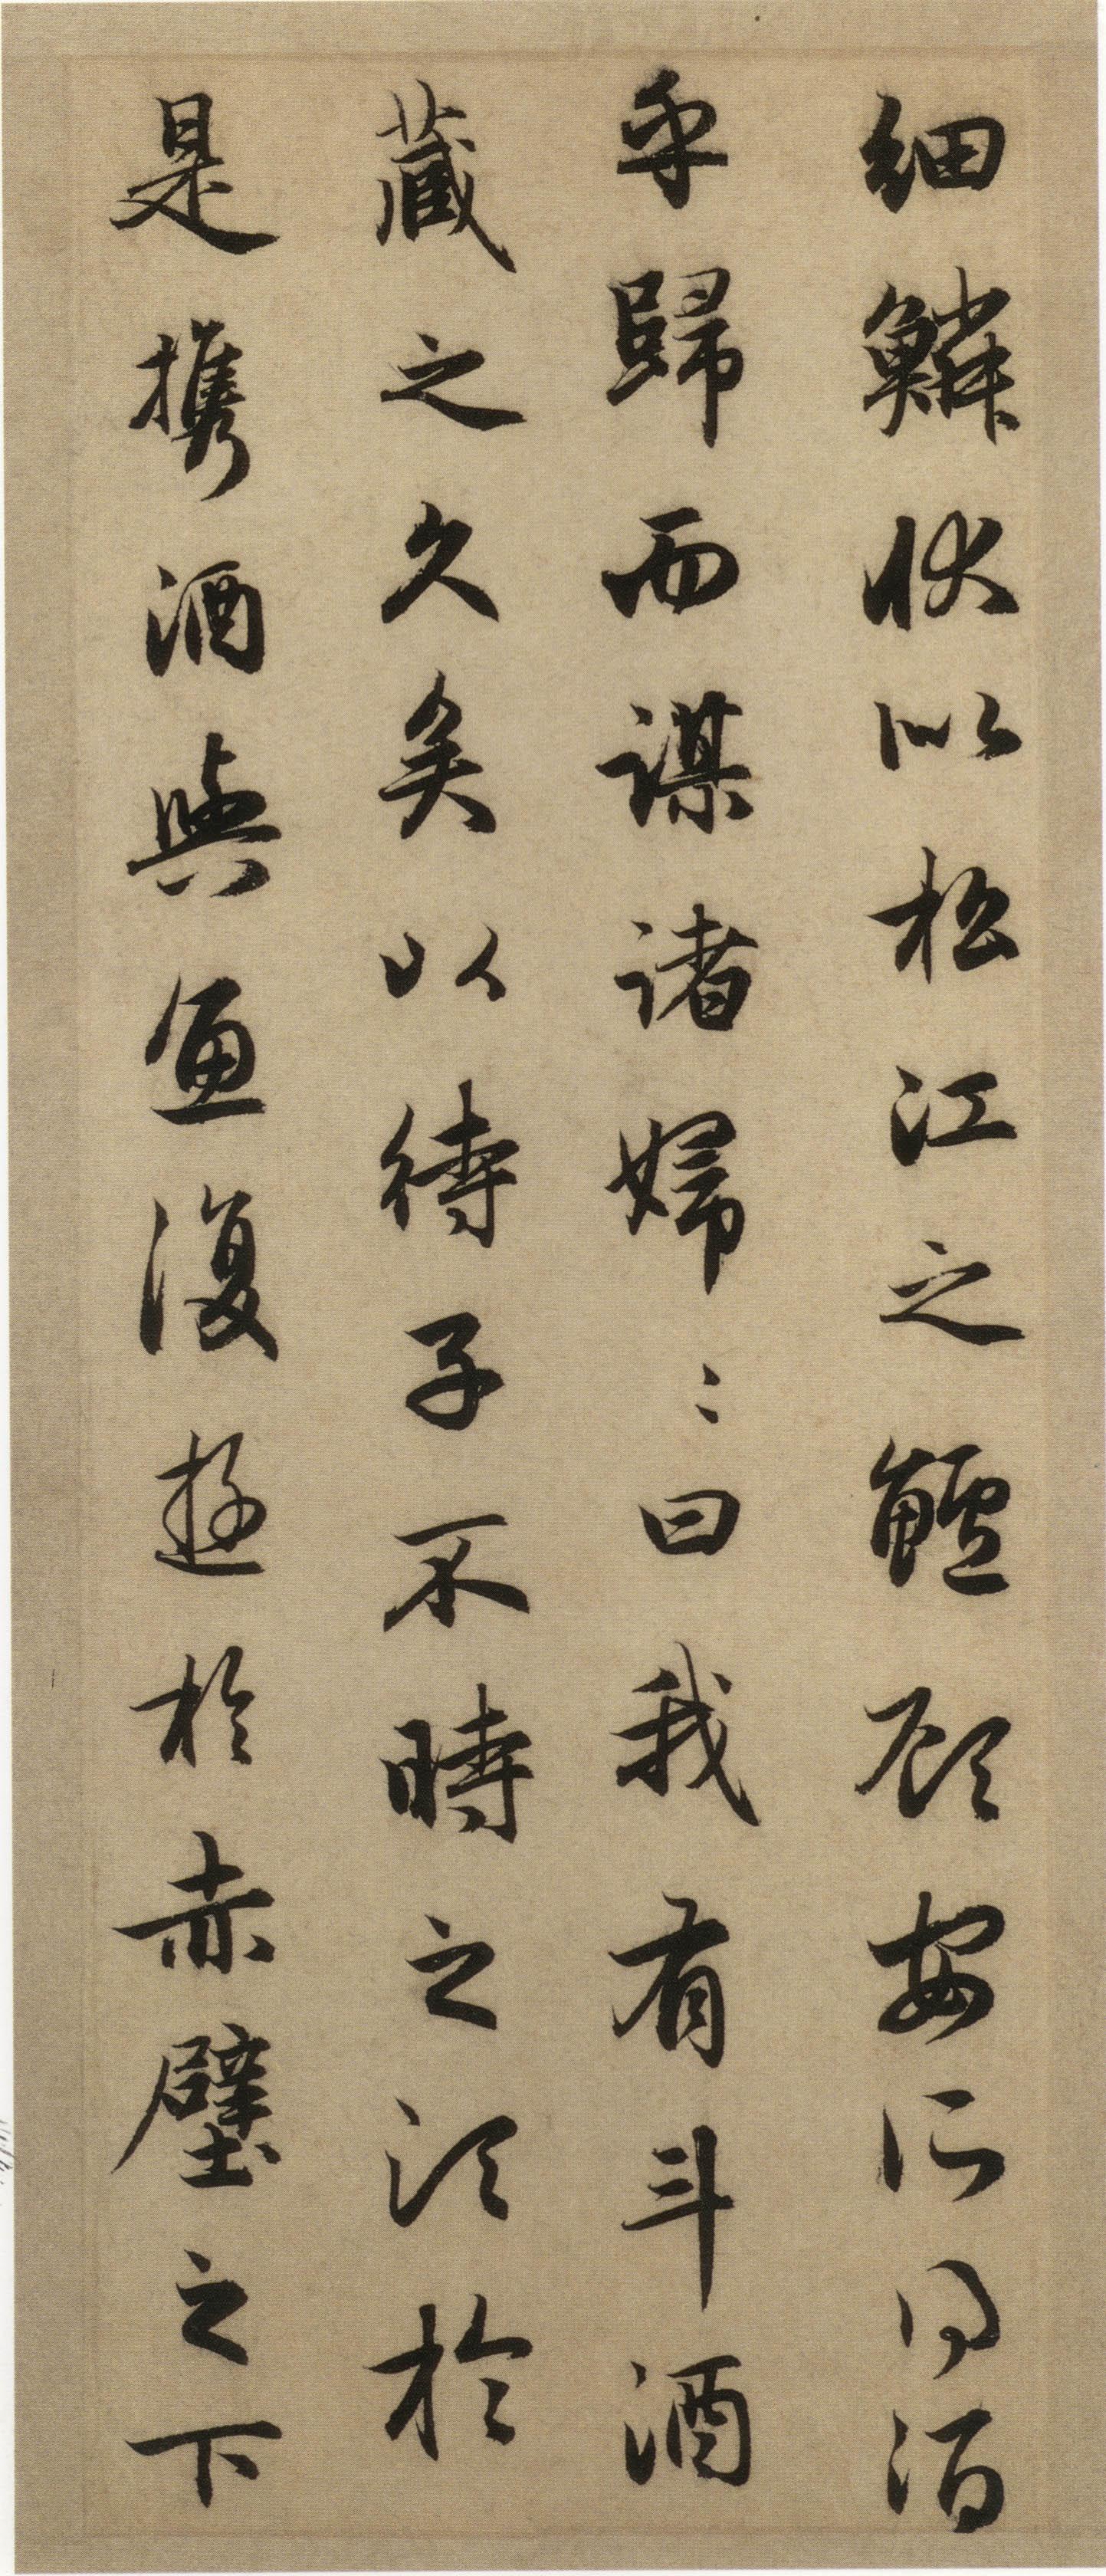 細鱗狀似松江之鱸顧安所得酒
乎歸而謀諸婦〻曰我有斗酒
藏之久矣以待子不時之須於
是攜酒與魚復遊於赤壁之下